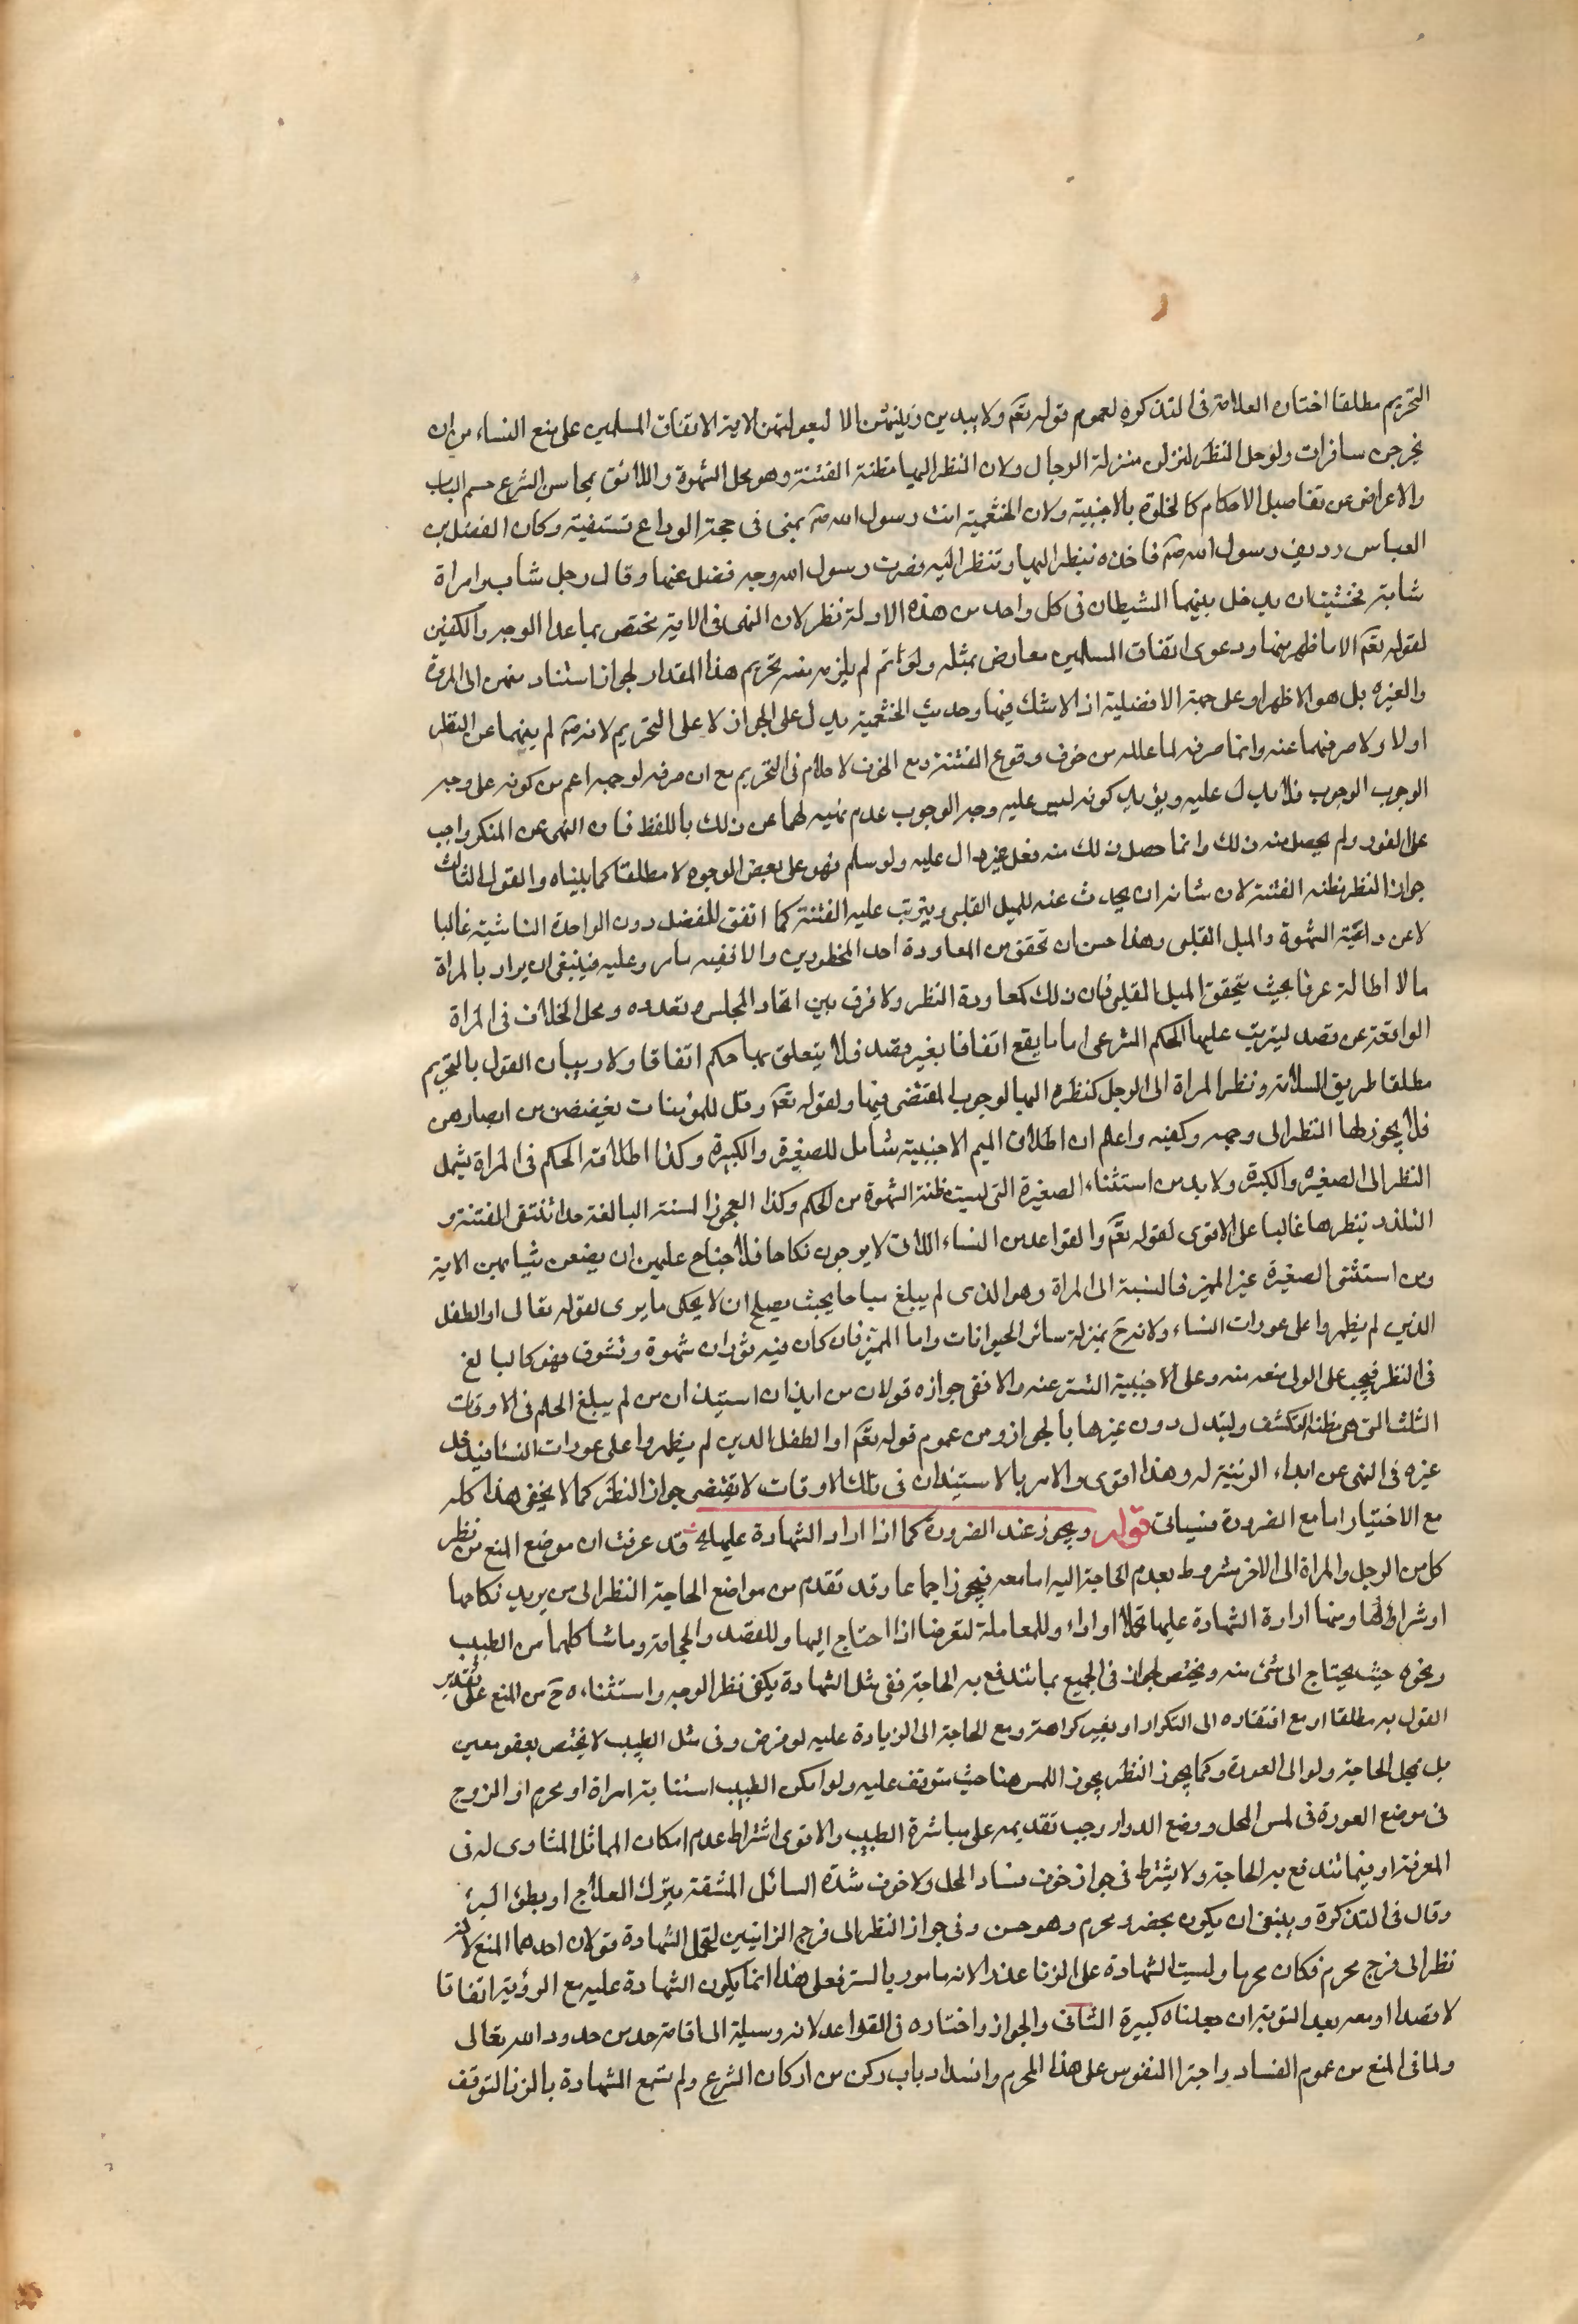 التحريم مطلقا اختاره العلامة فى التذكرة لعموم قوله تعم ولا يبدين زينتهن الا لبعولتهن الاية الاتفاق المسلمين على منع النساء من ان
يخرجن سافرات ولو حل النظر لنزلن منزلة الرجال ولان النظر اليها مظنة الفتنة وهو محل الشهوة واللائق بمحاسن الشرع حسم الباب
والاعراض عن تفاصيل الاحكام كالخلوة بالاجنبية ولان الخثعمية اتت رسول الله صم بمنى فى حجة الوداع تستفتيه وكان الفضل بن
العباس رديف رسول الله صم فاخذه ينظر اليها وتنظر اليه فصرف رسول الله وجه فضل عنها وقال رجل شاب وامراة
شابة فخشيت ان يدخل بينهما الشيطان فى كل واحد من هذه الادلة نظر لان النهى فى الاية مختص بما عدا الوجه والكفين
لقوله تعم الا ما ظهر منها ودعوى اتفاق المسلمين معارض بمثله ولو تم لم يلزم منه تحريم هذا المقدار لجواز استناد منعهن الى المروة
والغيره بل هو الاظهر او على جهة الافضلية اذ لا شك فيها وحديث الخثعمية يدل على الجواز لا على التحريم لانه صم لم ينهما عن النظر
اولا ولا صرفهما عنه وانما صرفه لما علله من خوف وقوع الفتنة ومع الخوف لا كلام فى التحريم مع ان صرفه لوجهه اعم من كونه على وجه
الوجوب الوجوب فلا يدل عليه ويؤيد كونه ليس عليه وجه الوجوب عدم نهيه لهما عن ذلك باللفظ فان النهى عن المنكر واجب
على الفور ولم يحصل منه ذلك وانما حصل ذلك منه فعل غير دال عليه ولو سلم فهو على بعض الوجوه لا مطلقا كما بيناه والقول الثالث
جواز النظر مظنه الفتنة لان شانه ان يحدث عنه للميل القلبى ويترتب عليه الفتنة كما اتفق للفضل دون الواحدة الناشية غالبا
لا عن داعية الشهوة والميل القلبى وهذا حسن ان تحقق من المعاودة احد المحظورين والا ففيه ما مر وعليه فينبغى ان يراد بالمراة
ما لا اطالة عرفا بحيث يتحقق الميل القلبى فان ذلك كمعاودة النظر ولا فرق بين اتحاد المجلس وتعدده ومحل الخلاف فى المراة
الواقعة عن قصد ليترتب عليها الحكم الشرعى اما ما يقع اتفاقا بغير قصد فلا يتعلق بها حكم اتفاقا ولا ريب ان القول بالتحريم
مطلقا طريق السلامة ونظر المراة الى الرجل كنظره اليها لوجوب المقتضى فيها ولقوله تعم وقل للمؤمنات يغضضن من ابصارهن
فلا يجوز لها النظر الى وجهه وكفيه واعلم ان اطلاق الميم الاجنبية شامل للصغيرة والكبيرة وكذا اطلاقه الحكم فى المراة يشمل
النظر الى الصغيره والكبيرة ولا بد من استثناء الصغيرة التى ليست مظنة الشهوة من الحكم وكذا العجوز المسنة البالغة حدا تنتفى الفتنة و
التلذذ بنظرها غالبا على الاقوى لقوله تعم والقواعد من النساء اللاتى لا يرجون نكاحا فلا جناح عليهن ان يضعن ثيابهن الاية
ومن استثنى الصغيرة غير المميز فى النسبة الى المراة وهو الذى لم يبلغ مبلغا بحيث يصلح ان لا يحكى ما يرى لقوله تعالى او الطفل
الذين لم يظهروا على عورات النساء ولانه ح بمنزلة سائر الحيوانات واما المميز فان كان فيه ثوران شهوة وتشوق فهو كالبالغ
فى النظر فيجب على الولى منعه منه وعلى الاجنبية التستر عنه والا ففى جوازه قولان من ايذان استيذان من لم يبلغ الحلم فى الاوقات
الثلث التى هى مظنة التكشف والتبذل دون غيرها بالجواز ومن عموم قوله تعم او الطفل الذين لم يظهروا على عورات النسا فيدخل
غيره فى النهى عن ابداء الزينة له وهذا اقوى والامر بالاستيذان فى تلك الاوقات لا تقتضى جواز النظر كما لا يخفى هذا كله
مع الاختيار اما مع الضرورة فسياتى قوله ويجوز عند الضرورة كما اذا اراد الشهادة عليها الخ قد عرفت ان موضع المنع من نظر
كل من الرجل والمراة الى الاخر مشروط بعدم الحاجة اليه اما معه فيجوز اجماعا وقد تقدم من مواضع الحاجة النظر الى من يريد نكاحها
او شراؤها ومنها ارادة الشهادة عليها تحملا او اداء وللمعاملة لتعرضا اذا احتاج اليها وللفصد والحجامة وما شاكلهما من الطبيب
ونحوه حيث يحتاج الى شئ منه ويختص الجواز فى الجميع بما تندفع به الحاجة ففى مثل الشهادة يكفى نظر الوجه واستثناءه ح من المنع على تقدير
القول به مطلقا او مع افتقاره الى التكرار او بغير كراهة ومع الحاجة الى الزيادة عليه لو فرض وفى مثل الطبيب لا يختص بعضو معين
بل بمحل الحاجة ولو الى العورة وكما يجوز النظر يجوز اللمس هنا حيث يتوقف عليه ولو امكن الطبيب استنابة امراة او محرم او الزوج
فى موضع العورة فى لمس المحل ووضع الدواء وجب تقديمه على مباشرة الطبيب والاقوى اشتراط عدم امكان المماثل المساوى له فى
المعرفة او فيما تندفع به الحاجة ولا يشترط فى جوازه خوف فساد المحل ولا خوف شدة السائل المشقة بترك العلاج او بطئ البرئ
وقال فى التذكرة وينبغى ان يكون بحضور محرم وهو حسن وفى جواز النظر الى فرج الزانيين لتحمل الشهادة قولان احدهما المنع لانه
نظر الى فرج محرم فكان محرما وليست الشهادة على الزنا عذرا لانه مامور بالستر فعلى هذا انما يكون الشهادة عليه مع الرؤية اتفاقا
لا قصدا او معه بعد التوبة ان جعلناه كبيرة الثانى والجواز واختاره فى القواعد لانه وسيلة الى اقامة حد من حدود الله تعالى
ولما فى المنع من عموم الفساد واجترا النفوس على هذا المحرم وانسداد باب ركن من اركان الشرع ولم تسمع الشهادة بالزنا لتوقف